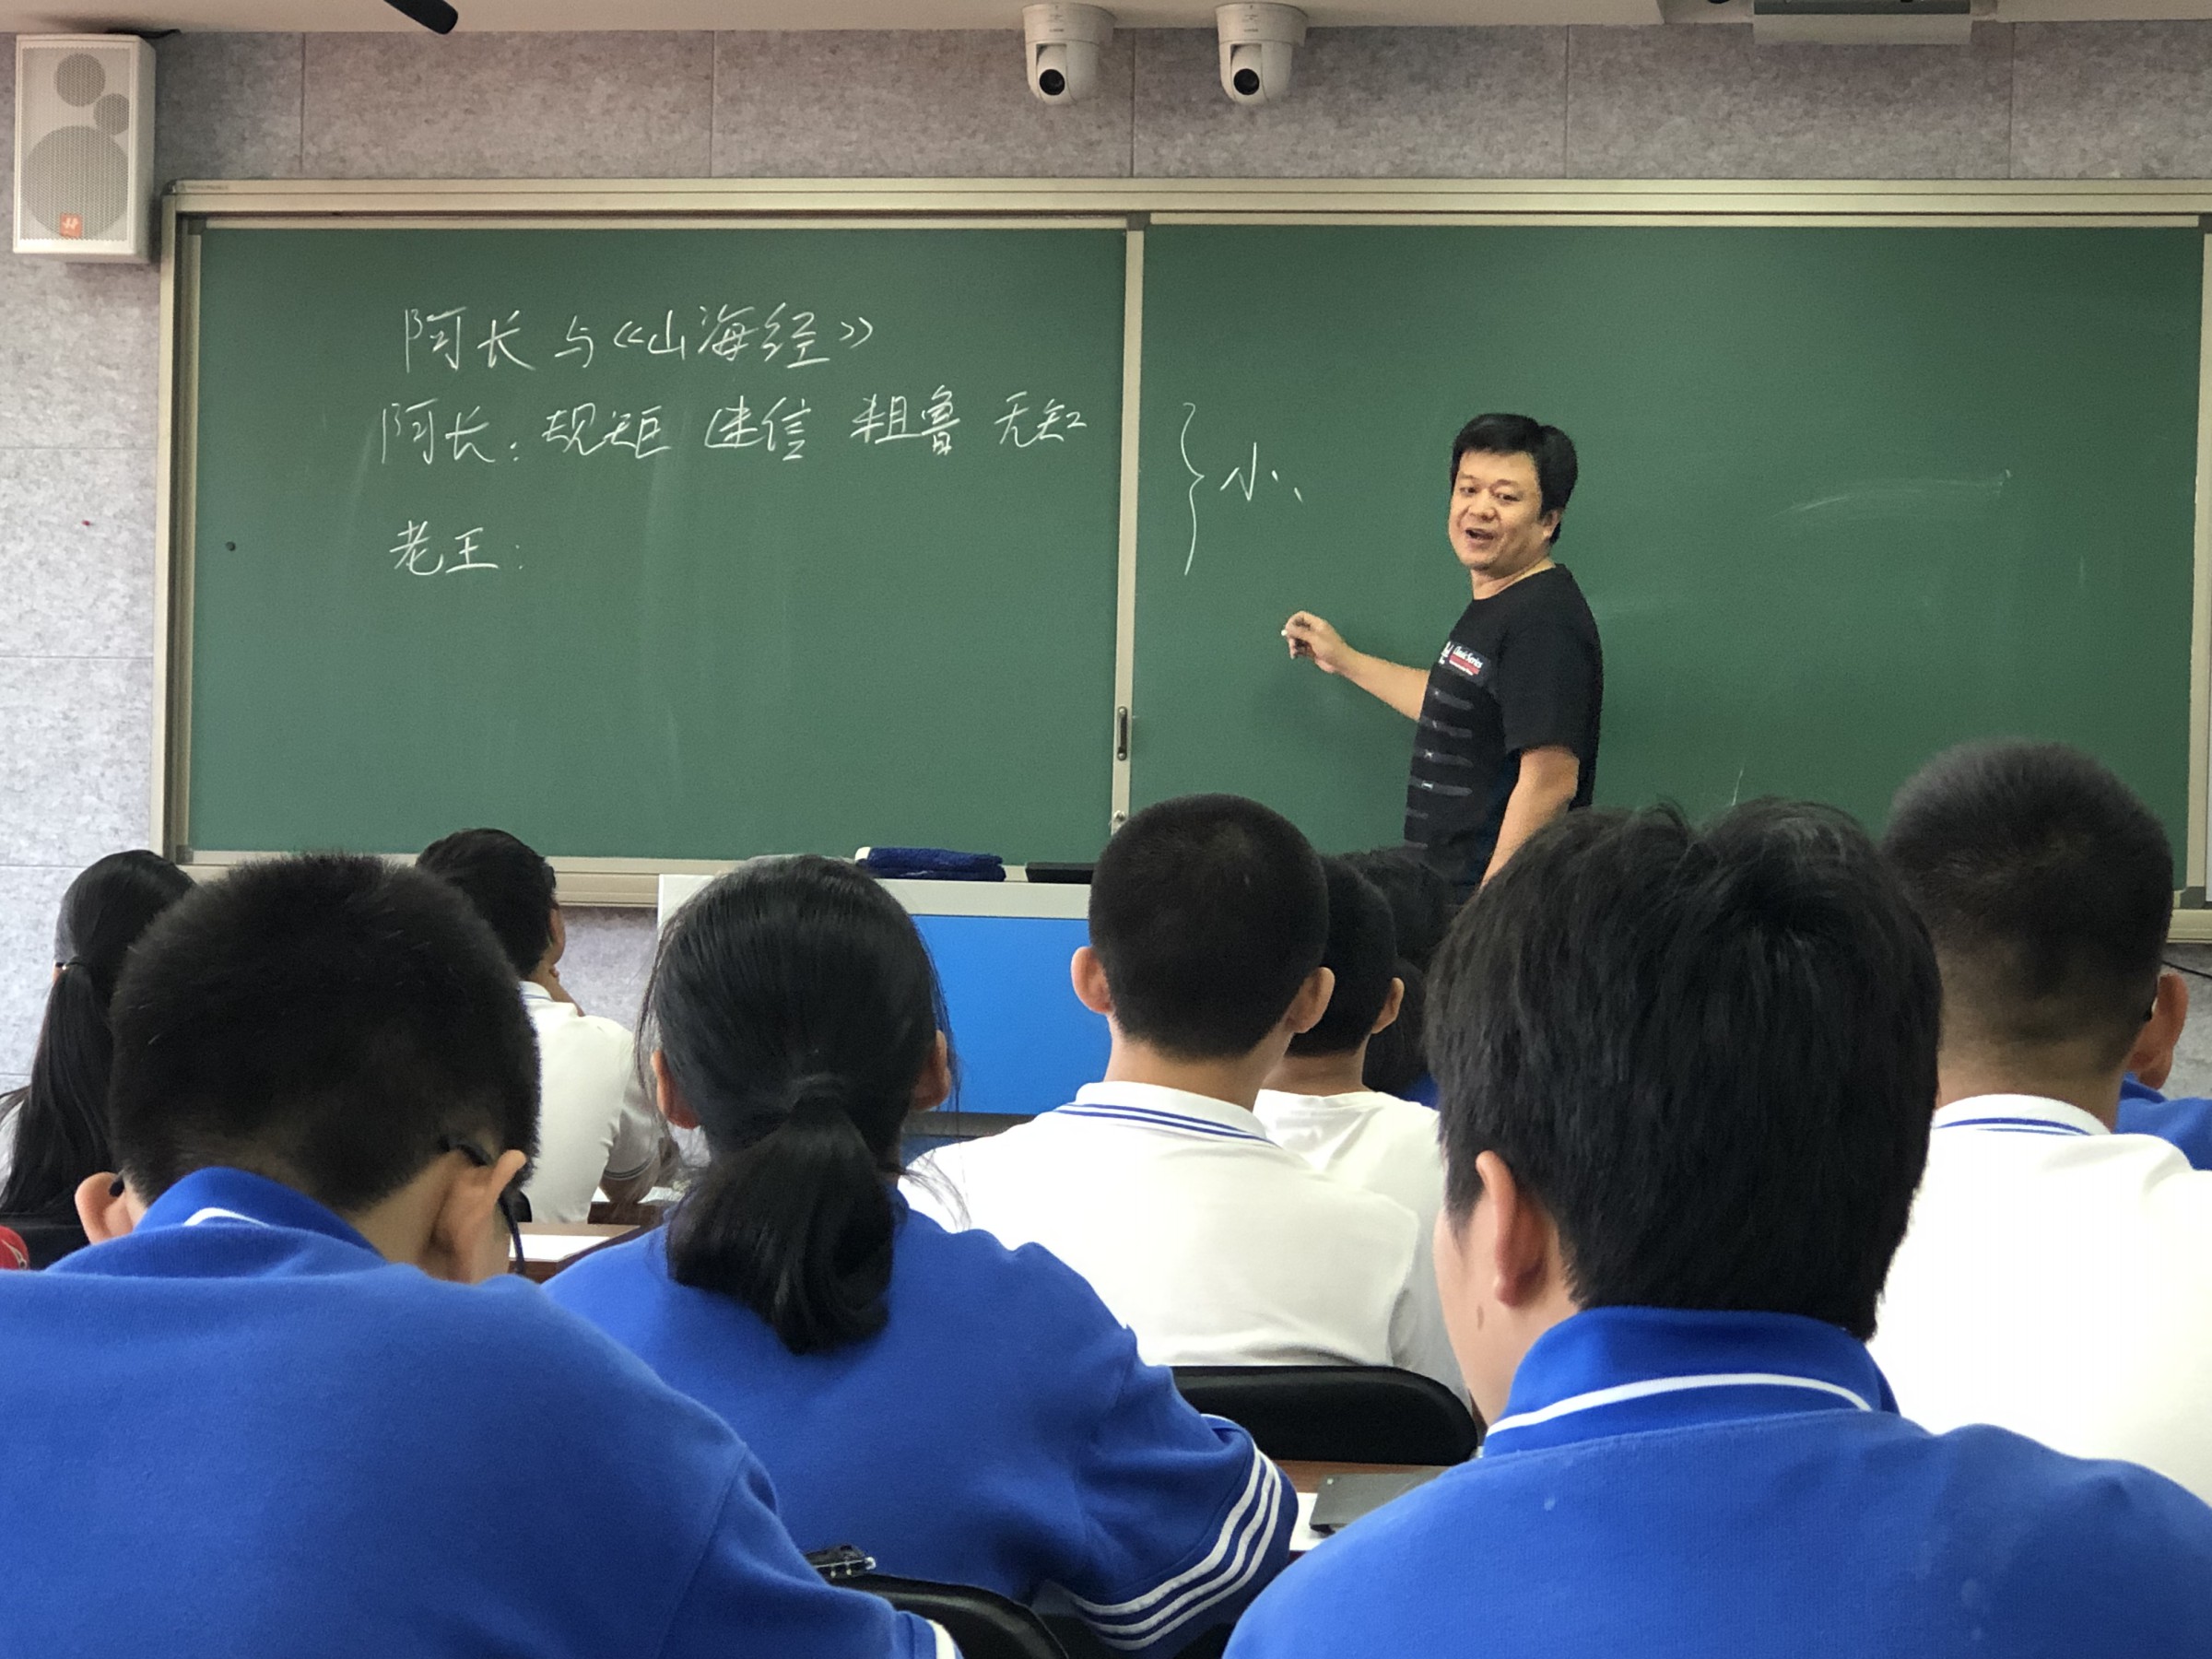 阿长与《山海经》
阿长：规矩 迷信 粗鲁 无知
} 小
老王：
Classic Series